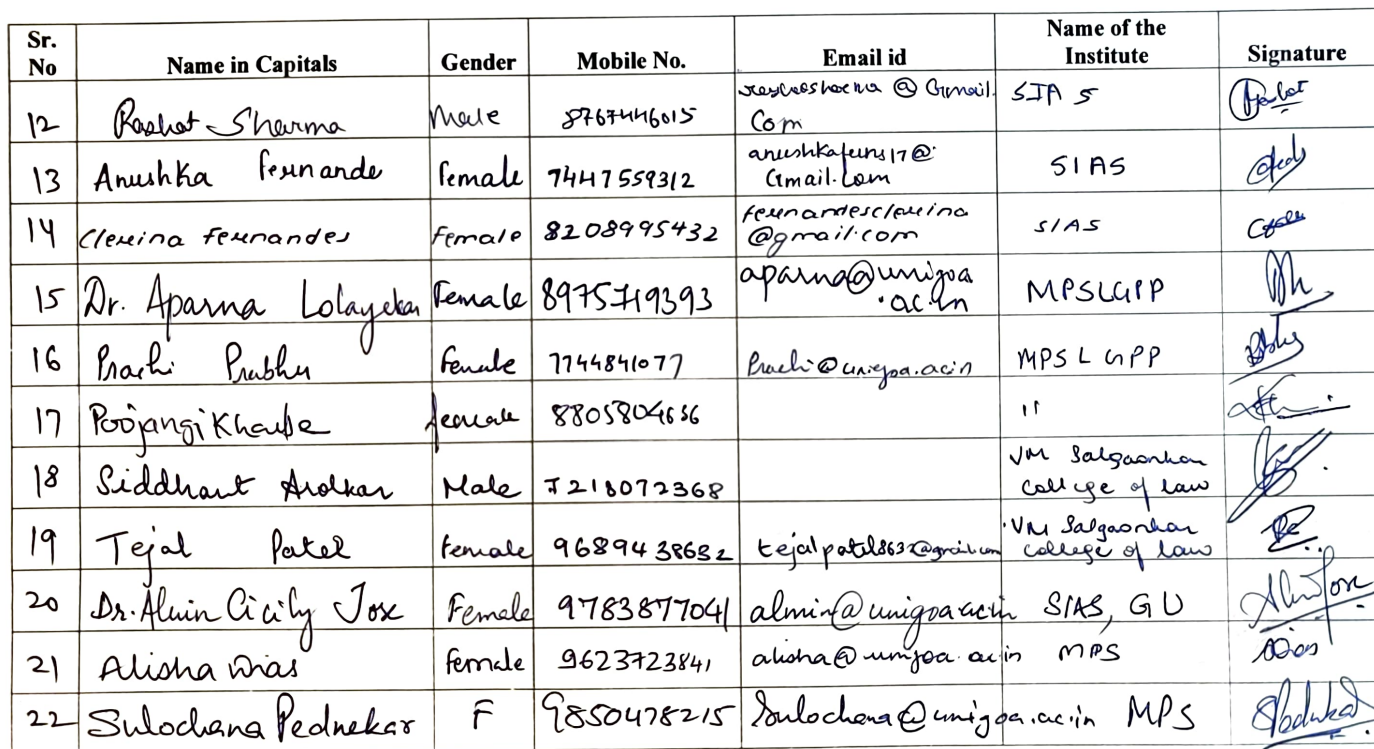 Sr. No Name in Capitals Gender Mobile No. Email id Name of the Institute Signature
12 Rashat Sharma Male 8767446015 @ Gmail. Com SIA S
13 Anushka Fernande female 7447559312 anushkaferns17@ Gmail.com SIAS
14 Clerina Fernandes Female 8208995432 fernandesclerina @gmail.com SIAS
15 Dr. Aparna Lolayekar Female 8975719393 aparna@unigoa .ac.in MPSLGIPP
16 Prachi Prabhu female 7744841077 Prachi@unigoa.ac.in MPS L GPP
17 Poojangi Khaube female 8805804636 "
18 Siddhant Arolkar Male 7218072368 VM Salgaonkar college of law
19 Tejal Patel Female 9689438632 tejalpatil8632@gmail.com VM Salgaonkar college of law
20 Dr. Alwin Cicily Jose Female 9783877041 almin@unigoa.ac.in SIAS, GU
21 Alisha Dias female 9623723841 alisha@unigoa.ac.in MPS
22 Sulochana Pednekar F 9850478215 Sulochana@unigoa.ac.in MPS